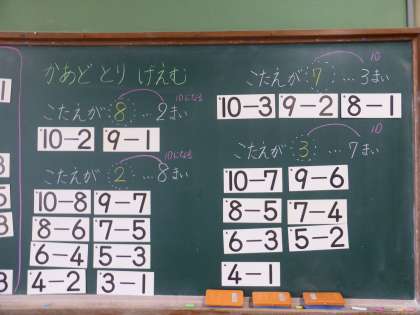 かあど とり げえむ
10になる
こたえが 8 … 2まい
10-2 9-1
10になる
こたえが 2 … 8まい
10-8 9-7
8-6 7-5
6-4 5-3
4-2 3-1
10
こたえが 7 … 3まい
10-3 9-2 8-1
10
こたえが 3 … 7まい
10-7 9-6
8-5 7-4
6-3 5-2
4-1